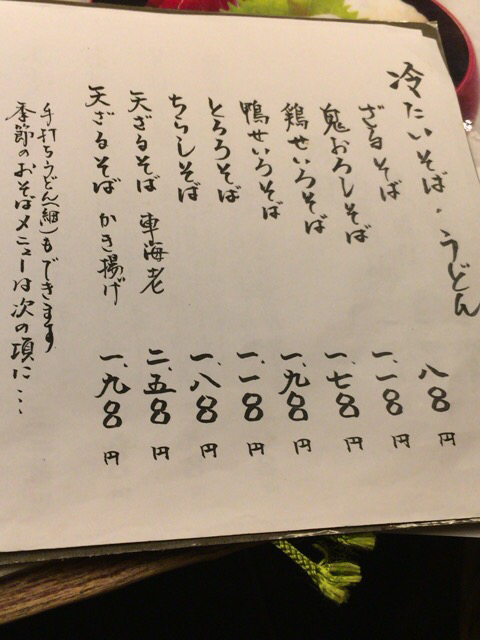 冷たいそば・うどん
ざるそば 八〇〇円
鬼おろしそば 一、一〇〇円
鶏せいろそば 一、七〇〇円
鴨せいろそば 一、九〇〇円
とろろそば 一、一〇〇円
ちらしそば 一、八〇〇円
天ざるそば 車海老 二、五〇〇円
天ざるそば かき揚げ 一、九〇〇円
手打ちうどん(細)もできます
季節のおそばメニューは次の項に…